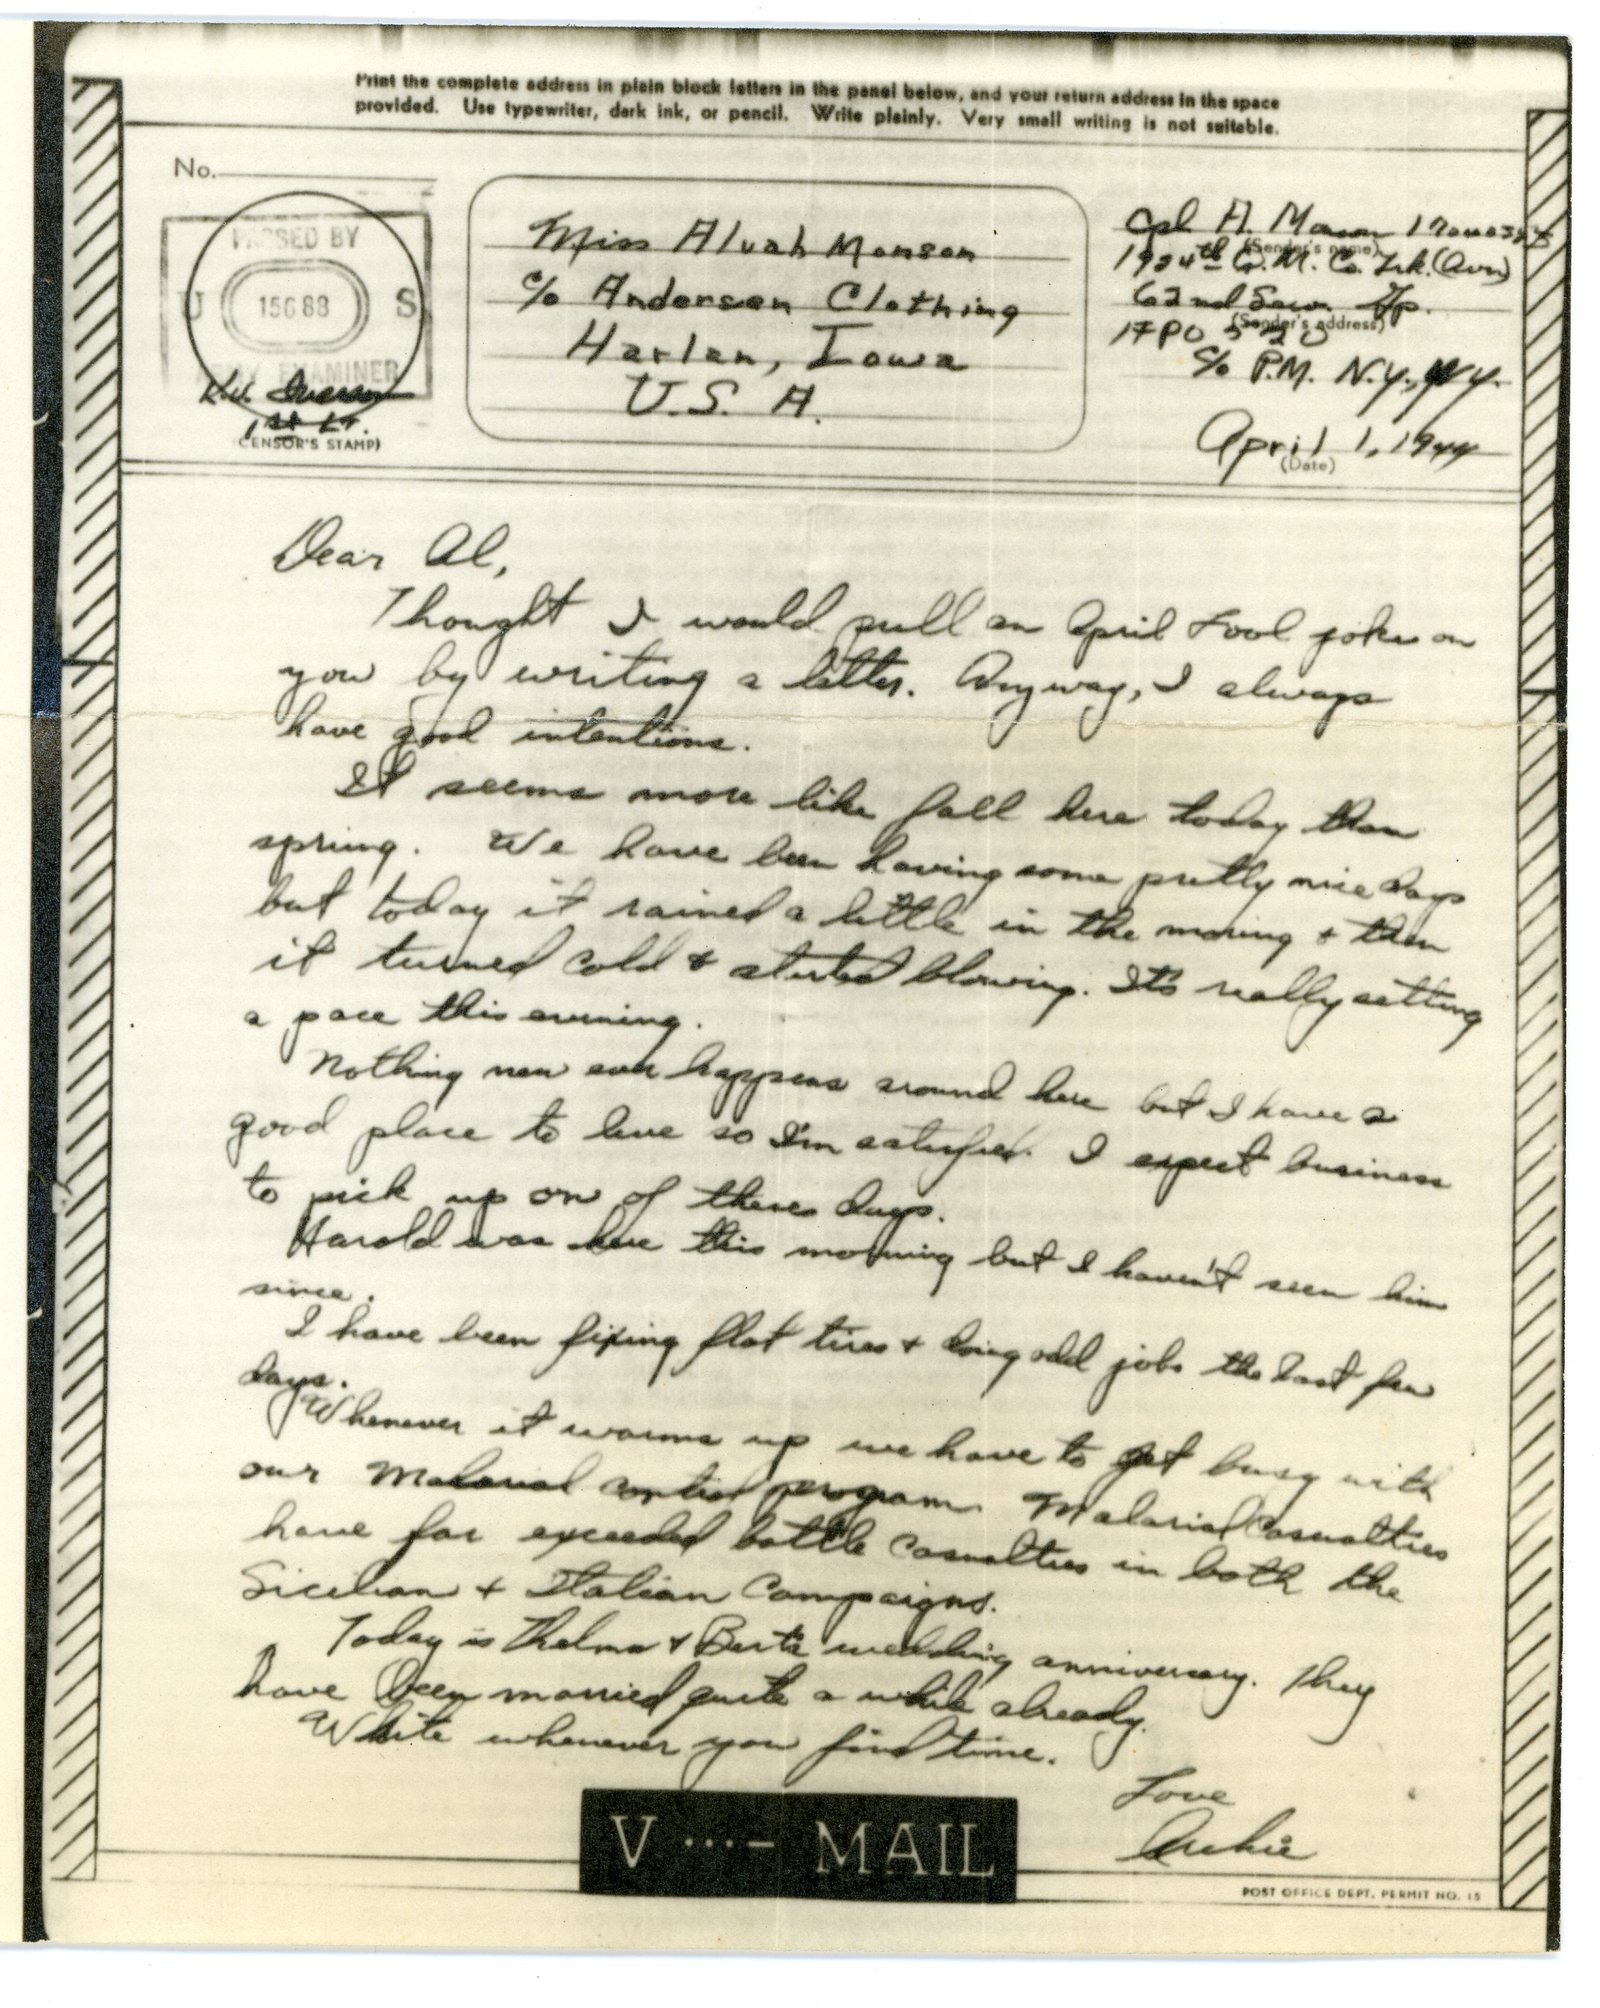 Print the complete address in plain block letters in the panel below, and your return address in the space
provided. Use typewriter, dark ink, or pencil. Write plainly. Very small writing is not suitable.
No.
PASSED BY
U 15688 S
ARMY EXAMINER
1st Lt.
(CENSOR'S STAMP)
Miss Alvah Monson
c/o Andersen Clothing
Harlan, Iowa
U.S.A.
Cpl A. Monson
(Sender's name)
1924th Q.M. Co. Trk. (Avn)
62nd Serv. Gp.
(Sender's address)
APO 520
c/o P.M. N.Y., N.Y.
April 1, 1944
(Date)
Dear Al,
Thought I would pull an April Fool joke on
you by writing a letter. Anyway, I always
have good intentions.
It seems more like fall here today than
spring. We have been having some pretty nice days
but today it rained a little in the morning & then
it turned cold & started blowing. It's really setting
a pace this evening.
Nothing new ever happens around here but I have a
good place to live so I'm satisfied. I expect business
to pick up one of theses days.
Harold was here this morning but I haven't seen him
since.
I have been fixing flat tires & doing odd jobs the last few
days.
Whenever it warms up we have to get busy with
our Malarial control program. Malarial Casualties
have far exceeded battle casualties in both the
Sicilian & Italian Campaigns.
Today is Thelma & Bert's wedding anniversary. They
have been married quite a while already.
Write whenever you find time.
Love
Archie
V ...- MAIL
POST OFFICE DEPT. PERMIT NO. 15